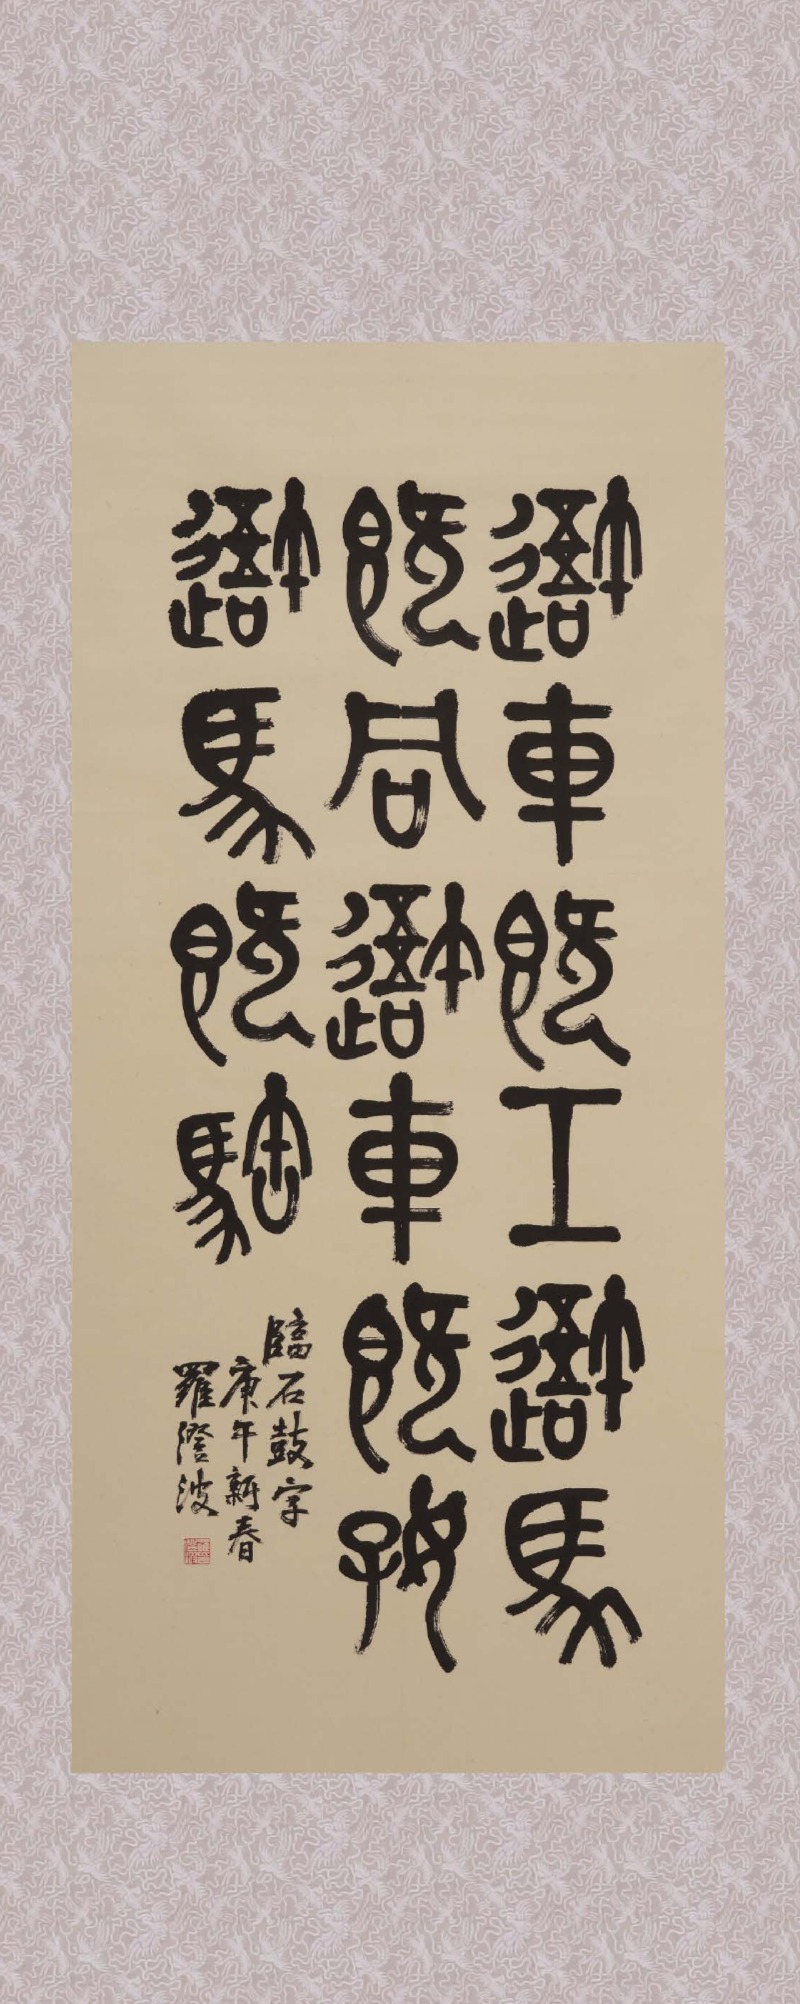 䢒車既工䢒馬
既同䢒車既好
䢒馬既𩣡
臨石鼓字
庚午新春
羅澄波